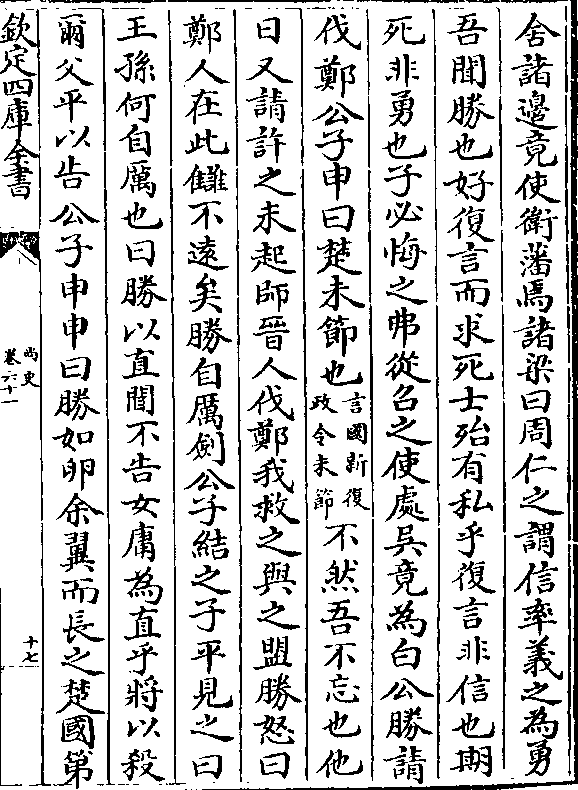 舍諸邊竟使衛藩焉諸梁曰周仁之謂信率義之為勇
吾聞勝也好復言而求死士殆有私乎復言非信也期
死非勇也子必悔之弗從召之使處吳竟為白公勝請
伐鄭公子申曰楚未節也言國新復政令未節不然吾不忘也他
日又請許之未起師晉人伐鄭我救之與之盟勝怒曰
鄭人在此讎不遠矣勝自厲劍公子結之子平見之曰
王孫何自厲也曰勝以直聞不告女庸為直乎將以殺
爾父平以告公子申申曰勝如卵余翼而長之楚國第
欽定四庫全書
尚史
卷六十一
十七